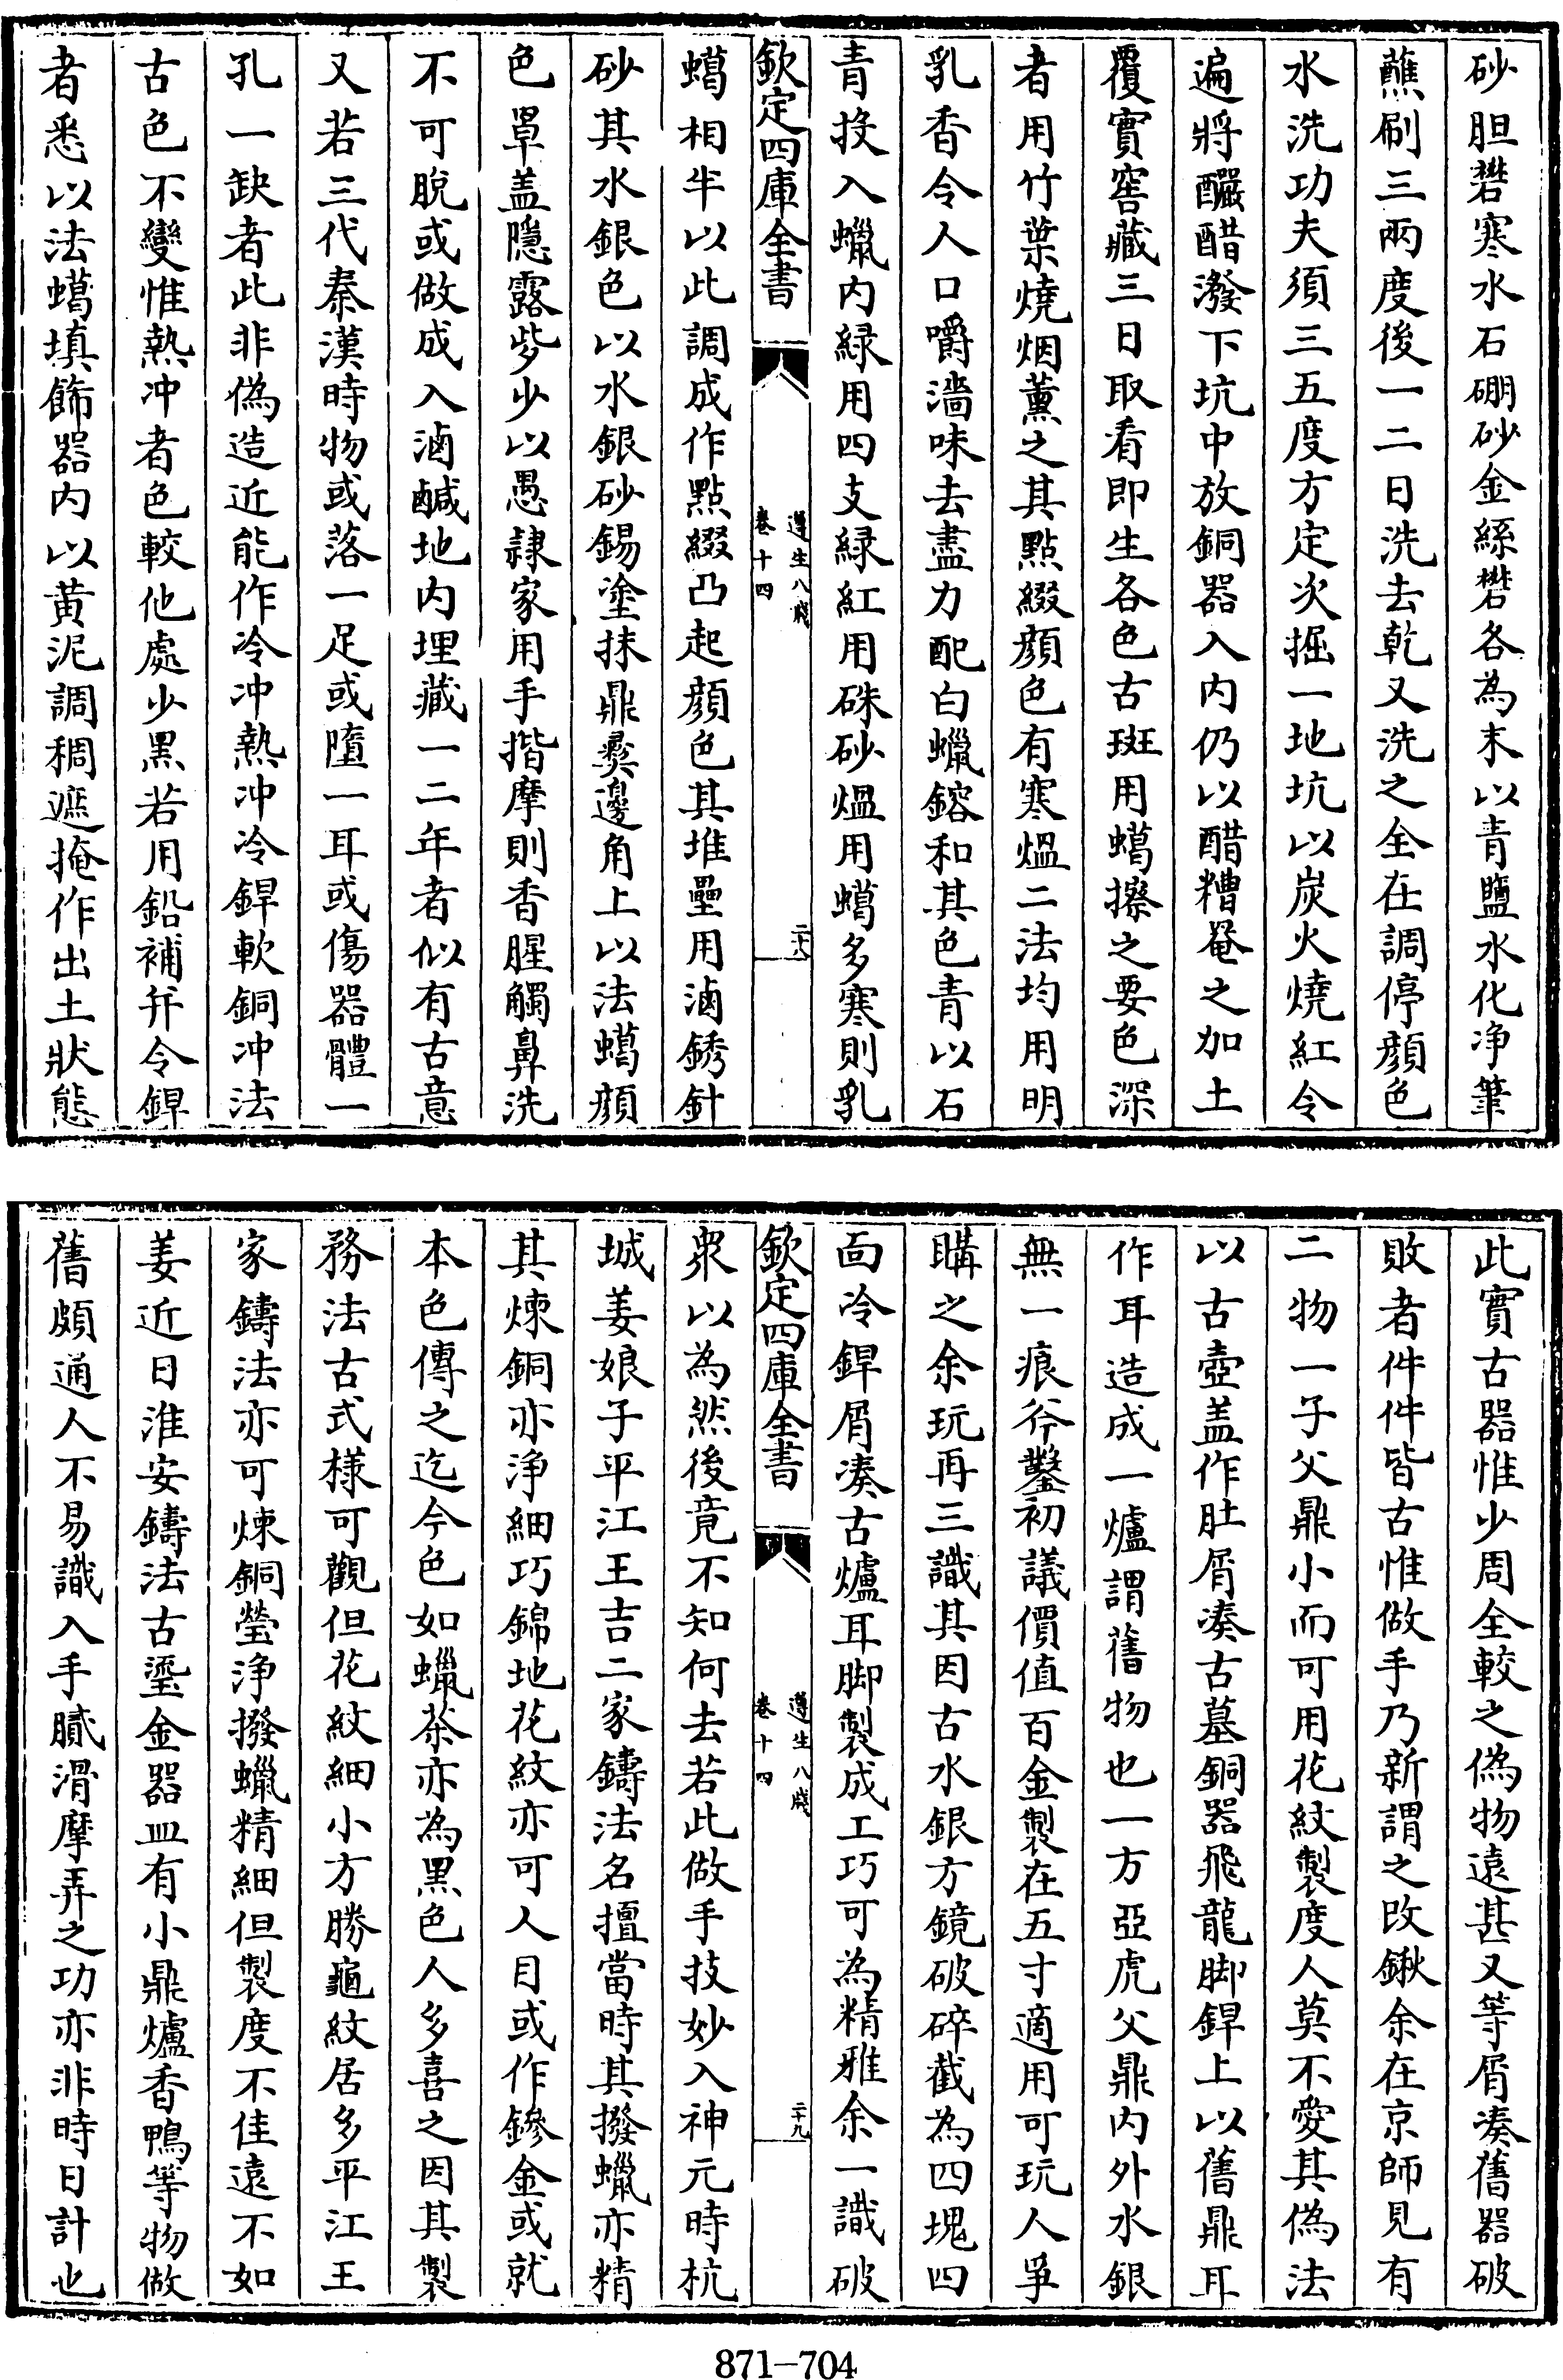 砂胆礬寒水石硼砂金絲礬各為末以青鹽水化净筆
蘸刷三兩度後一二日洗去乾又洗之全在調停顔色
水洗功夫須三五度方定次掘一地坑以炭火燒紅令
遍將釅醋潑下坑中放銅器入内仍以醋糟罨之加土
覆實窖藏三日取看即生各色古斑用蠟擦之要色深
者用竹葉燒烟薰之其點綴顔色有寒煴二法均用明
乳香令人口嚼濇味去盡力配白蠟鎔和其色青以石
青投入蠟内緑用四支緑紅用硃砂煴用蠟多寒則乳
欽定四庫全書
遵生八牋
卷十四
二十八
蠟相半以此調成作點綴凸起顔色其堆壘用滷銹針
砂其水銀色以水銀砂錫塗抹鼎彛邊角上以法蠟顔
色罩盖隱露些少以愚隷家用手揩摩則香腥觸鼻洗
不可脱或做成入滷鹹地内埋藏一二年者似有古意
又若三代秦漢時物或落一足或墮一耳或傷器體一
孔一缺者此非偽造近能作冷冲熱冲冷銲軟銅冲法
古色不變惟熱冲者色較他處少黒若用鉛補并令銲
者悉以法蠟填飾器内以黄泥調稠遮掩作出土狀態
此實古器惟少周全較之偽物遠甚又等屑凑舊器破
敗者件件皆古惟做手乃新謂之改鍬余在京師見有
二物一子父鼎小而可用花紋製度人莫不愛其偽法
以古壺盖作肚屑凑古墓銅器飛龍脚銲上以舊鼎耳
作耳造成一爐謂舊物也一方亞虎父鼎内外水銀
無一痕斧鑿初議價值百金製在五寸適用可玩人爭
購之余玩再三識其因古水銀方鏡破碎截為四塊四
面冷銲屑凑古爐耳脚製成工巧可為精雅余一識破
欽定四庫全書
遵生八牋
卷十四
二十九
衆以為然後竟不知何去若此做手技妙入神元時杭
城姜娘子平江王吉二家鑄法名擅當時其撥蠟亦精
其煉銅亦淨細巧錦地花紋亦可人目或作鏒金或就
本色傳之迄今色如蠟茶亦為黒色人多喜之因其製
務法古式様可觀但花紋細小方勝龜紋居多平江王
家鑄法亦可煉銅瑩淨撥蠟精細但製度不佳遠不如
姜近日淮安鑄法古鎏金器皿有小鼎爐香鴨等物做
舊頗通人不易識入手膩滑摩弄之功亦非時日計也
871—704